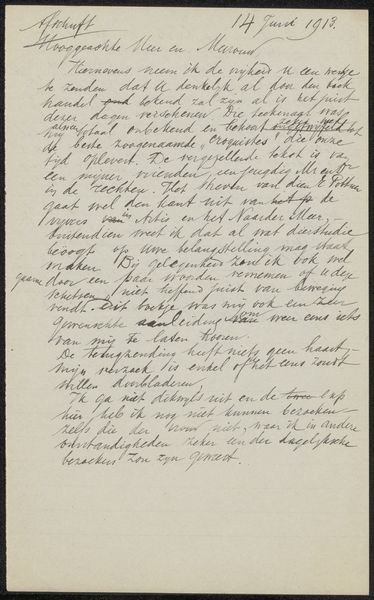 Afschrift
14 Juni 1913.
Hooggeachte Heer en Mevrouw
Hiernevens neem ik de vrijheid U een werkje
te zenden dat U denkelijk al door den boek
handel bekend zal zijn al is het juist
dezer dagen verschenen. De teekenaar was
mij totaal onbekend en behoort zeker
de beste zoogenaamde „croquistes" die onze
tijd oplevert. De vergezellende tekst is van
een mijner vrienden, een jeugdig Mr en Dr
in de rechten. Het streven van dien E Pottner
gaat wel den kant uit van
wijzers Artis en het Naarder Meer,
buitendien weet ik dat al wat dierstudie
beoogt op Uwe belangstelling mag staat
maken. Bij gelegenheid zou ik ook wel
gaarne door een paar woorden vernemen of U deze
schetsen niet treffend juist van beweging
vendt. Dit boekje was mij ook een zeer
gewenschte aanleiding om weer eens iets
van mij te laten hooren.
De terugzending heeft niets geen haast,
mijn verzoek is enkel of het eens zoudt
willen doorbladeren,
Ik ga niet dikwijls uit en de
hier heb ik nog niet kunnen bezoeken
zelfs die der niet, waar ik in andere
omstandigheden zeker een der dagelijksche
bezoekers zou zijn geweest.